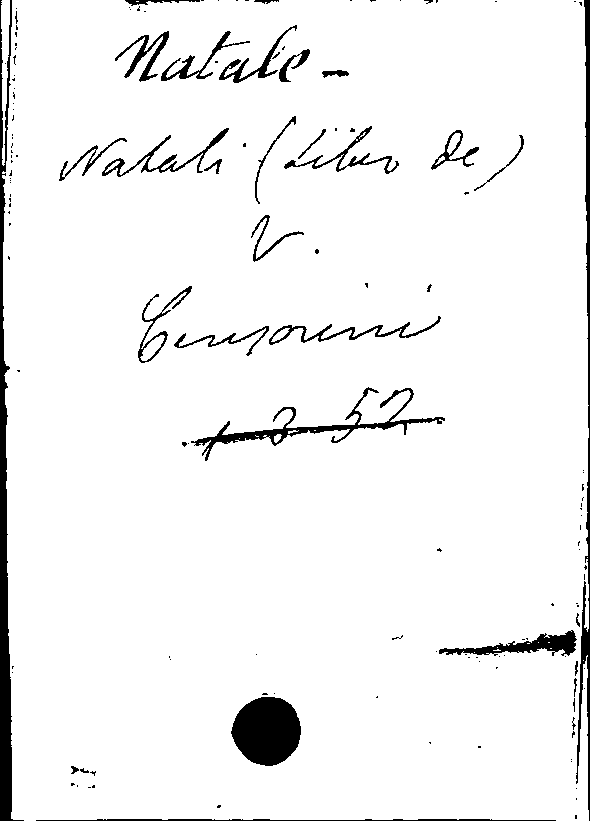 Natale -
Natali (Liber de)
V.
Censorini
1 3 52